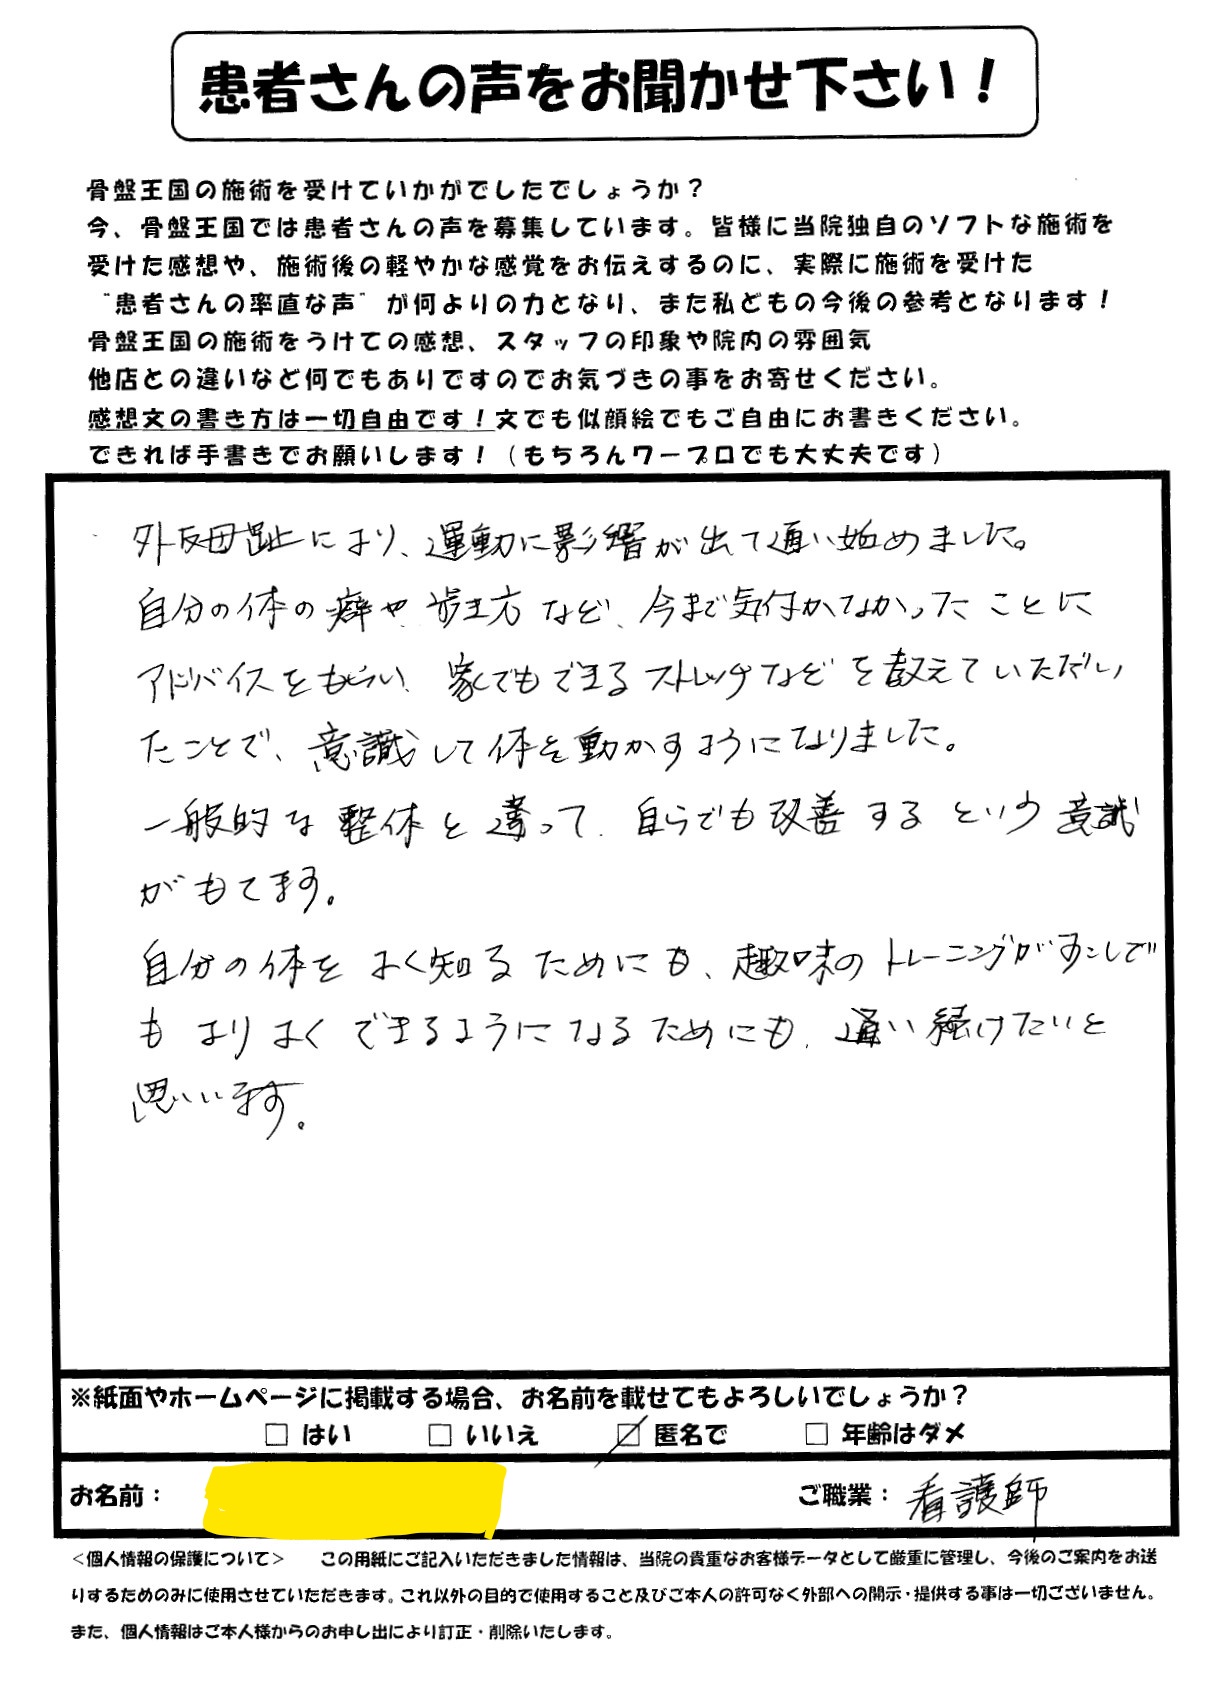 患者さんの声をお聞かせ下さい！
骨盤王国の施術を受けていかがでしたでしょうか？
今、骨盤王国では患者さんの声を募集しています。皆様に当院独自のソフトな施術を
受けた感想や、施術後の軽やかな感覚をお伝えするのに、実際に施術を受けた
"患者さんの率直な声"が何よりの力となり、また私どもの今後の参考となります！
骨盤王国の施術をうけての感想、スタッフの印象や院内の雰囲気
他店との違いなど何でもありですのでお気づきの事をお寄せください。
感想文の書き方は一切自由です！文でも似顔絵でもご自由にお書きください。
できれば手書きでお願いします！（もちろんワープロでも大丈夫です）
外反母趾により、運動に影響が出て通い始めました。
自分の体の癖や、歩き方など、今まで気付かなかったことに
アドバイスをもらい、家でもできるストレッチなどを教えていただい
たことで、意識して体を動かすようになりました。
一般的な整体と違って、自らでも改善するという意識
がもてます。
自分の体をよく知るためにも、趣味のトレーニングがすこしで
もよりよくできるようになるためにも、通い続けたいと
思います。
※紙面やホームページに掲載する場合、お名前を載せてもよろしいでしょうか？
□ はい □ いいえ ☑ 匿名で □ 年齢はダメ
お名前： ご職業：看護師
＜個人情報の保護について＞ この用紙にご記入いただきました情報は、当院の貴重なお客様データとして厳重に管理し、今後のご案内をお送
りするためのみに使用させていただきます。これ以外の目的で使用すること及びご本人の許可なく外部への開示・提供する事は一切ございません。
また、個人情報はご本人様からのお申し出により訂正・削除いたします。